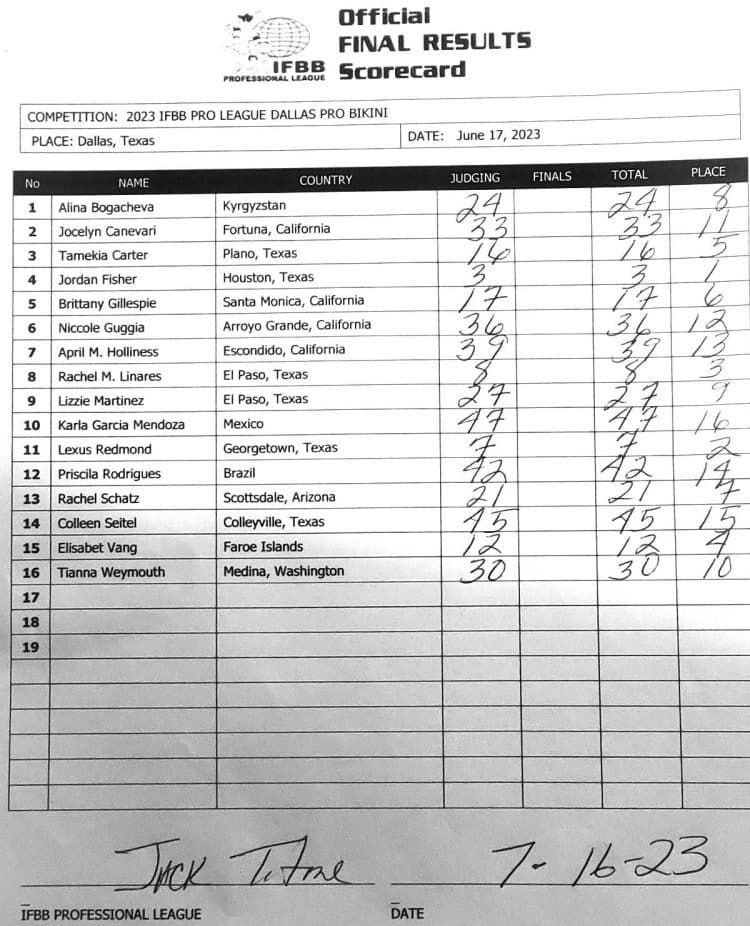 Official
FINAL RESULTS
Scorecard
IFBB
PROFESSIONAL LEAGUE
COMPETITION: 2023 IFBB PRO LEAGUE DALLAS PRO BIKINI
PLACE: Dallas, Texas DATE: June 17, 2023
No NAME COUNTRY JUDGING FINALS TOTAL PLACE
1 Alina Bogacheva Kyrgyzstan 24 24 8
2 Jocelyn Canevari Fortuna, California 33 33 11
3 Tamekia Carter Plano, Texas 16 16 5
4 Jordan Fisher Houston, Texas 3 3 1
5 Brittany Gillespie Santa Monica, California 17 17 6
6 Niccole Guggia Arroyo Grande, California 36 36 12
7 April M. Holliness Escondido, California 39 39 13
8 Rachel M. Linares El Paso, Texas 8 8 3
9 Lizzie Martinez El Paso, Texas 27 27 9
10 Karla Garcia Mendoza Mexico 47 47 16
11 Lexus Redmond Georgetown, Texas 7 7 2
12 Priscila Rodrigues Brazil 42 42 14
13 Rachel Schatz Scottsdale, Arizona 21 21 7
14 Colleen Seitel Colleyville, Texas 45 45 15
15 Elisabet Vang Faroe Islands 12 12 4
16 Tianna Weymouth Medina, Washington 30 30 10
17
18
19
Jack 7-16-23
IFBB PROFESSIONAL LEAGUE DATE